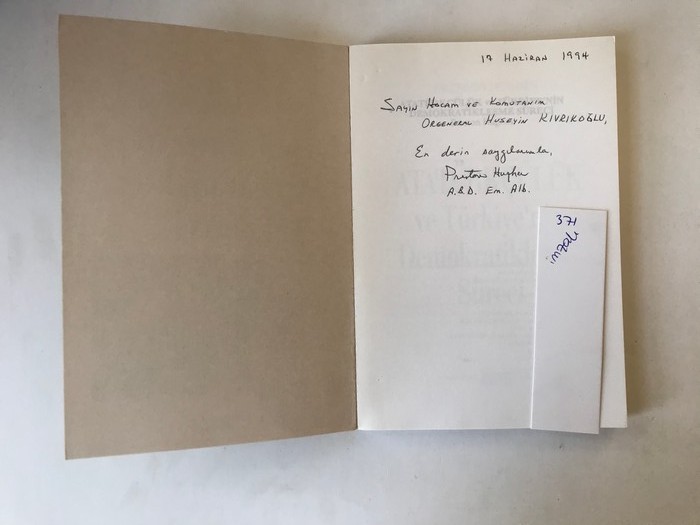 17 HAZİRAN 1994
SAYIN HOCAM VE KOMUTANIM
ORGENERAL HÜSEYİN KIVRIKOĞLU,
En derin saygılarımla,
Preston Hughes
A.B.D. Em. Alb.
371
imzalı
ve Türkiye'
Süreci